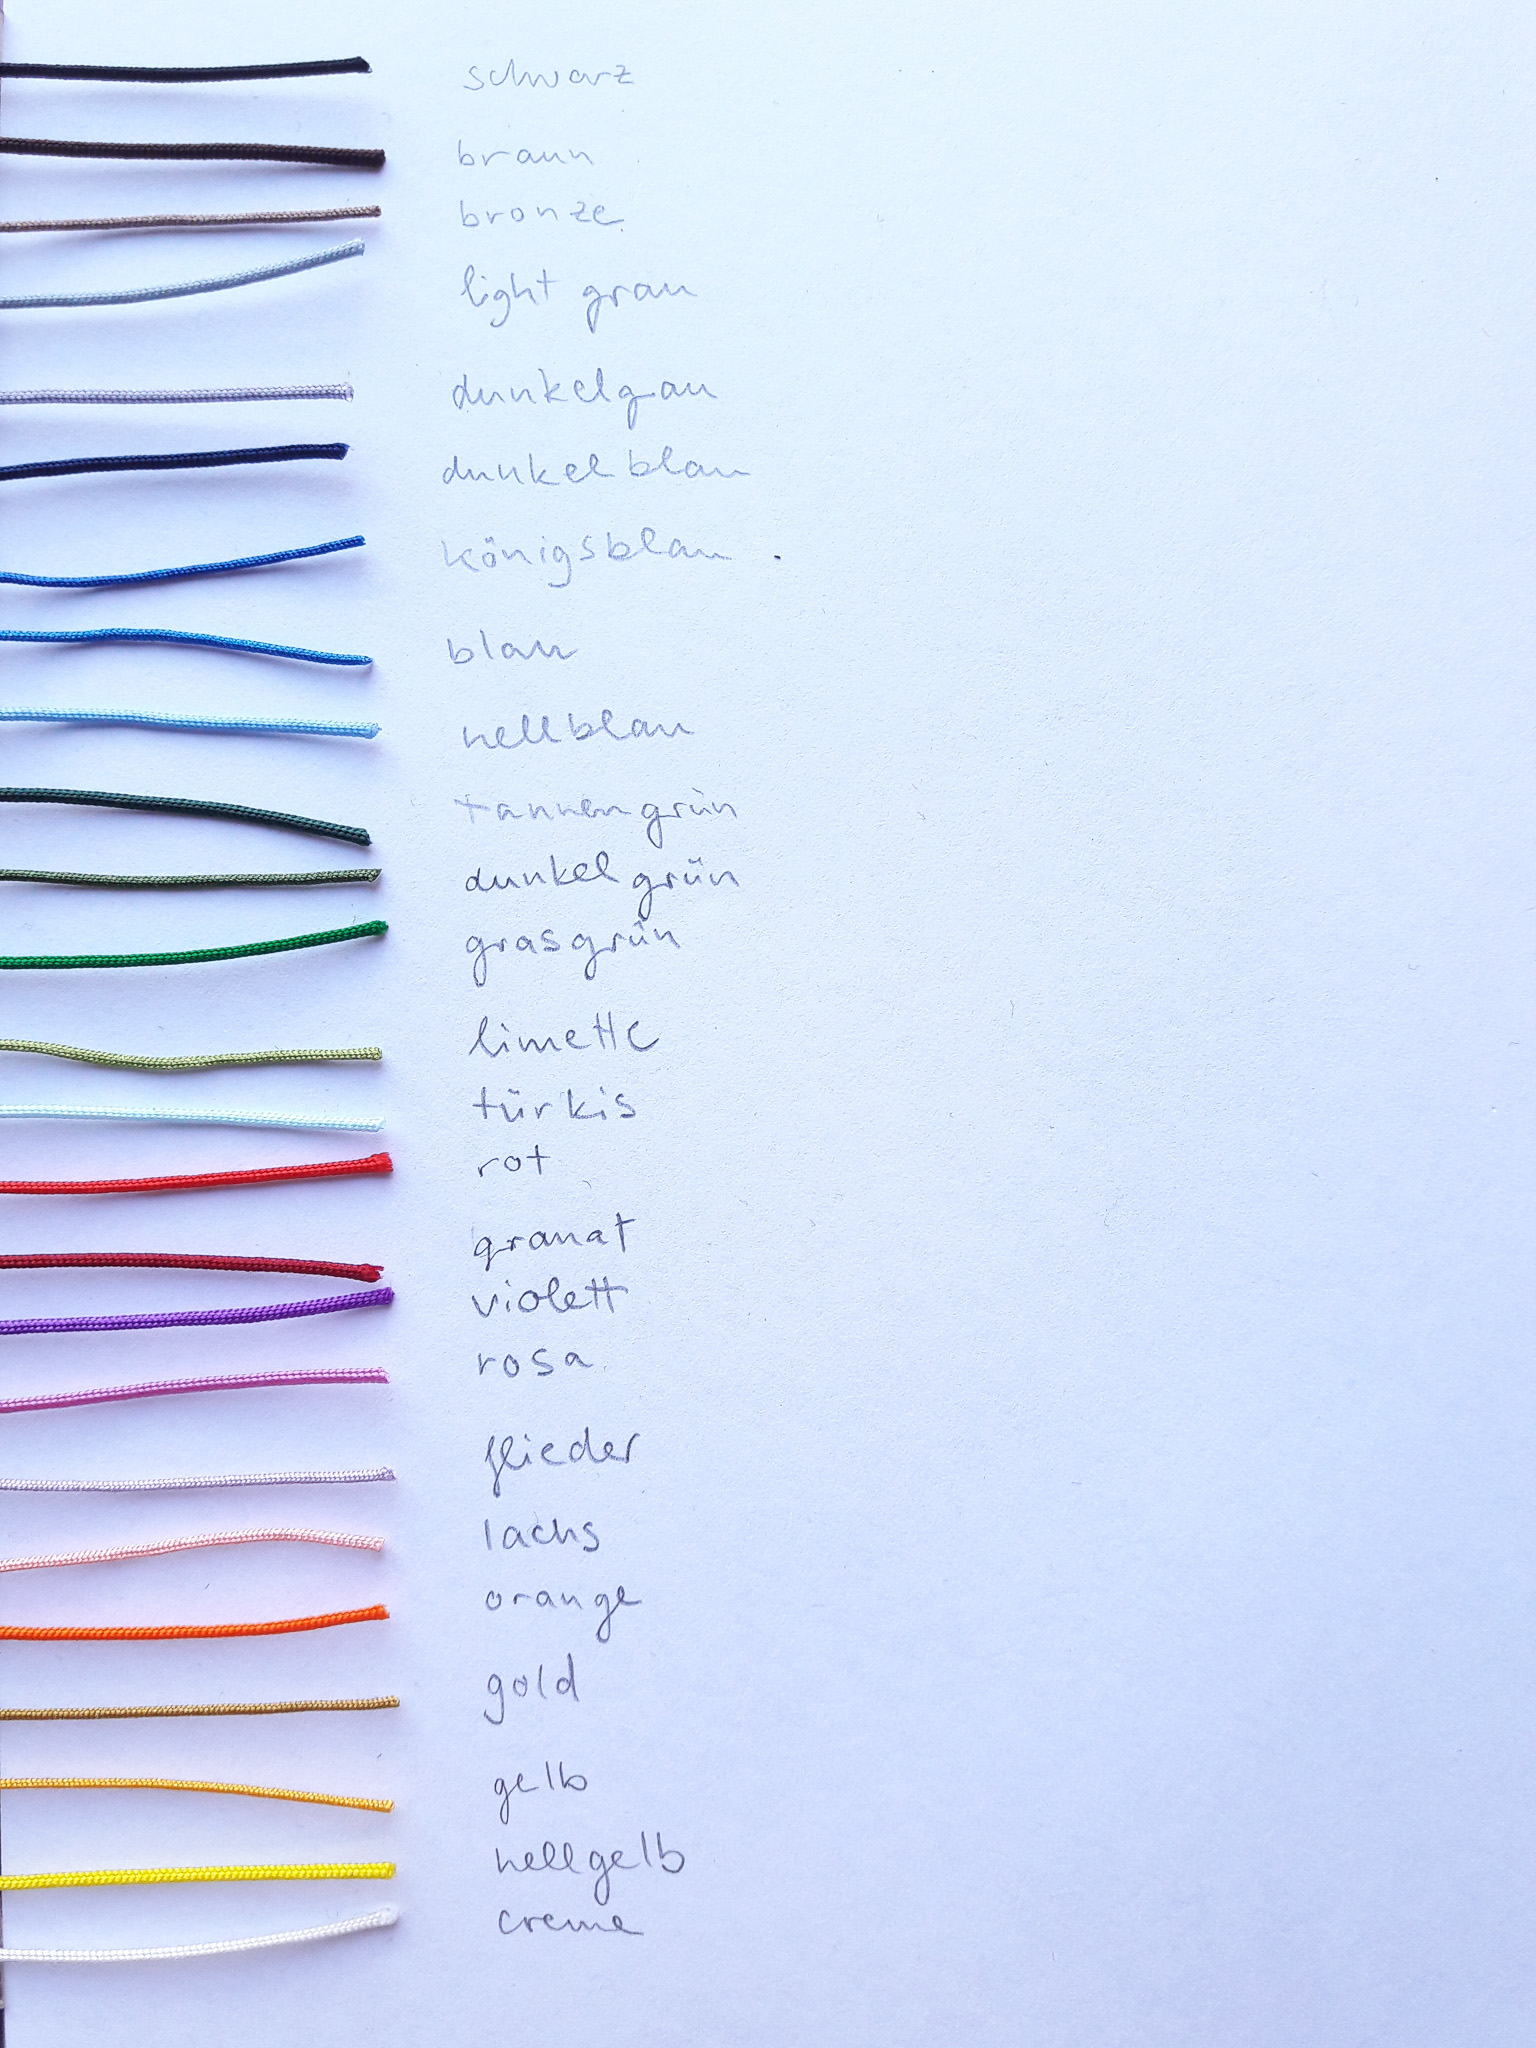 schwarz
braun
bronze
light grau
dunkelgrau
dunkelblau
königsblau
blau
hellblau
tannengrün
dunkelgrün
grasgrün
limette
türkis
rot
granat
violett
rosa
flieder
lachs
orange
gold
gelb
hellgelb
creme